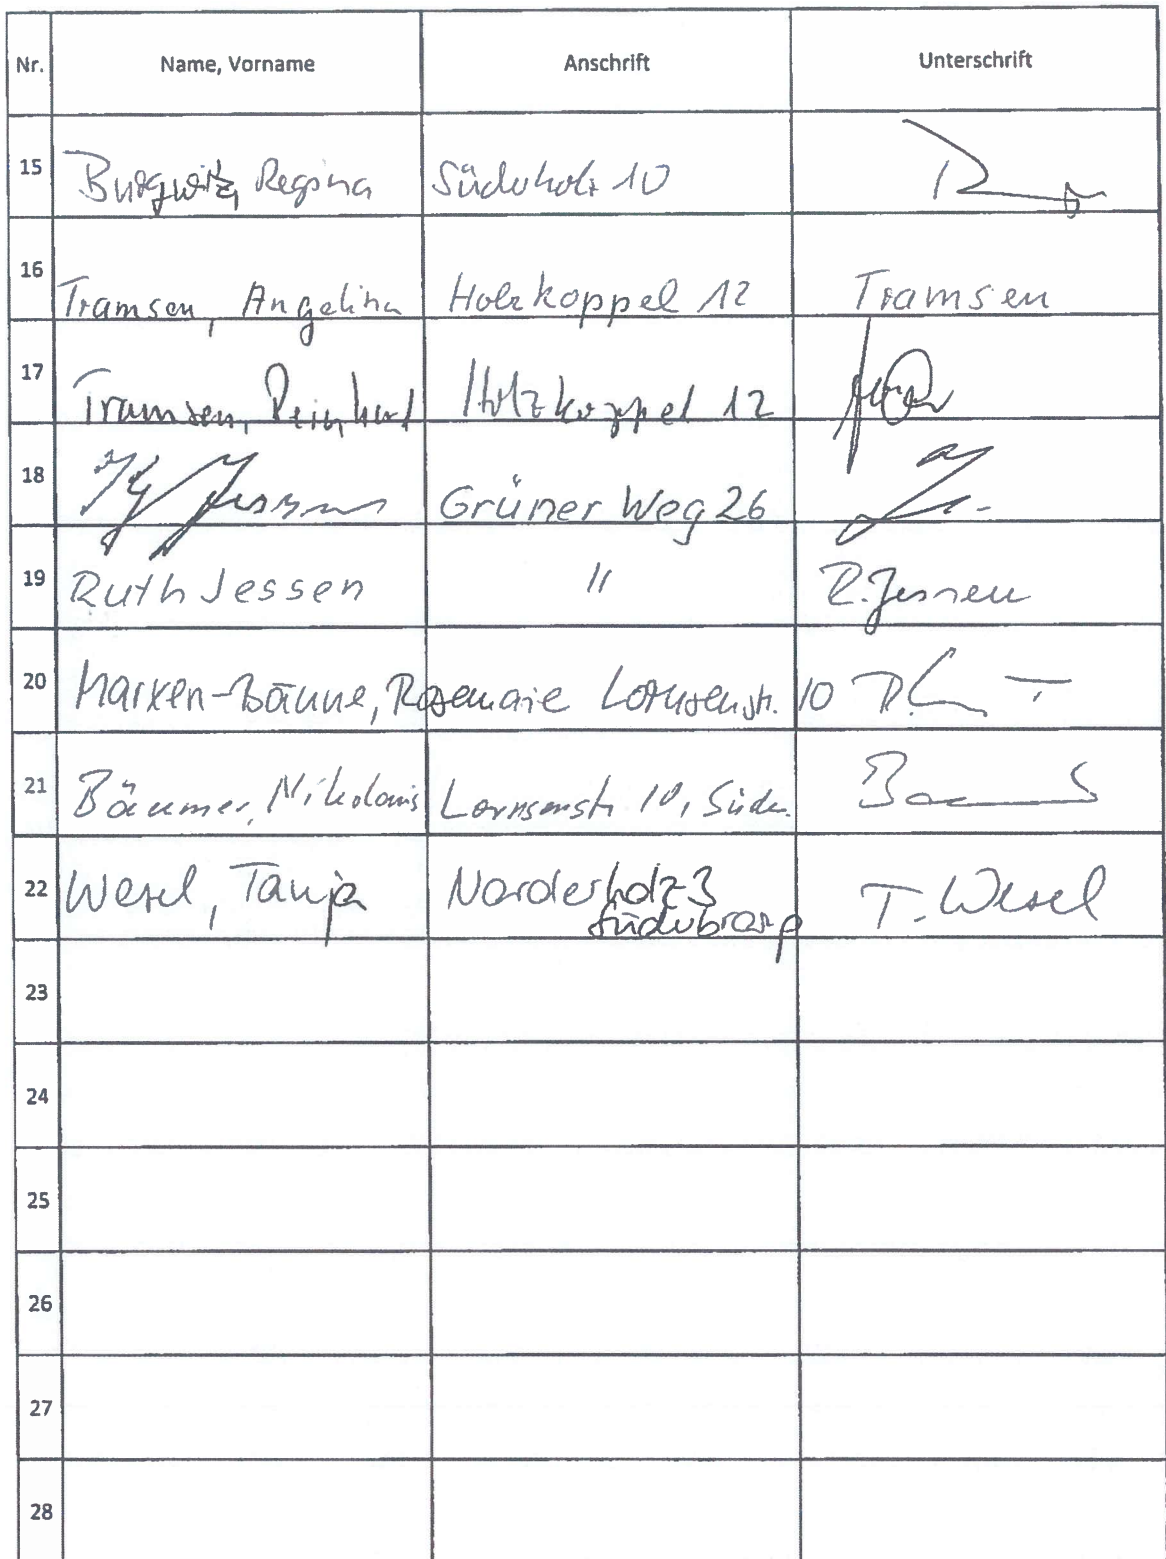 Nr. Name, Vorname Anschrift Unterschrift
15 Regina Süderholz 10
16 Tramsen, Angelina Holzkoppel 12 Tramsen
17 Tramsen, Reinhard Holzkoppel 12
18 Jessen Grüner Weg 26
19 Ruth Jessen " R. Jessen
20 Rosemarie Lornsenstr. 10
21 Bäumer, Nikolaus Lornsenstr 10, Süder.
22 Wesel, Tanja Norderholz 3 T. Wesel
23
24
25
26
27
28